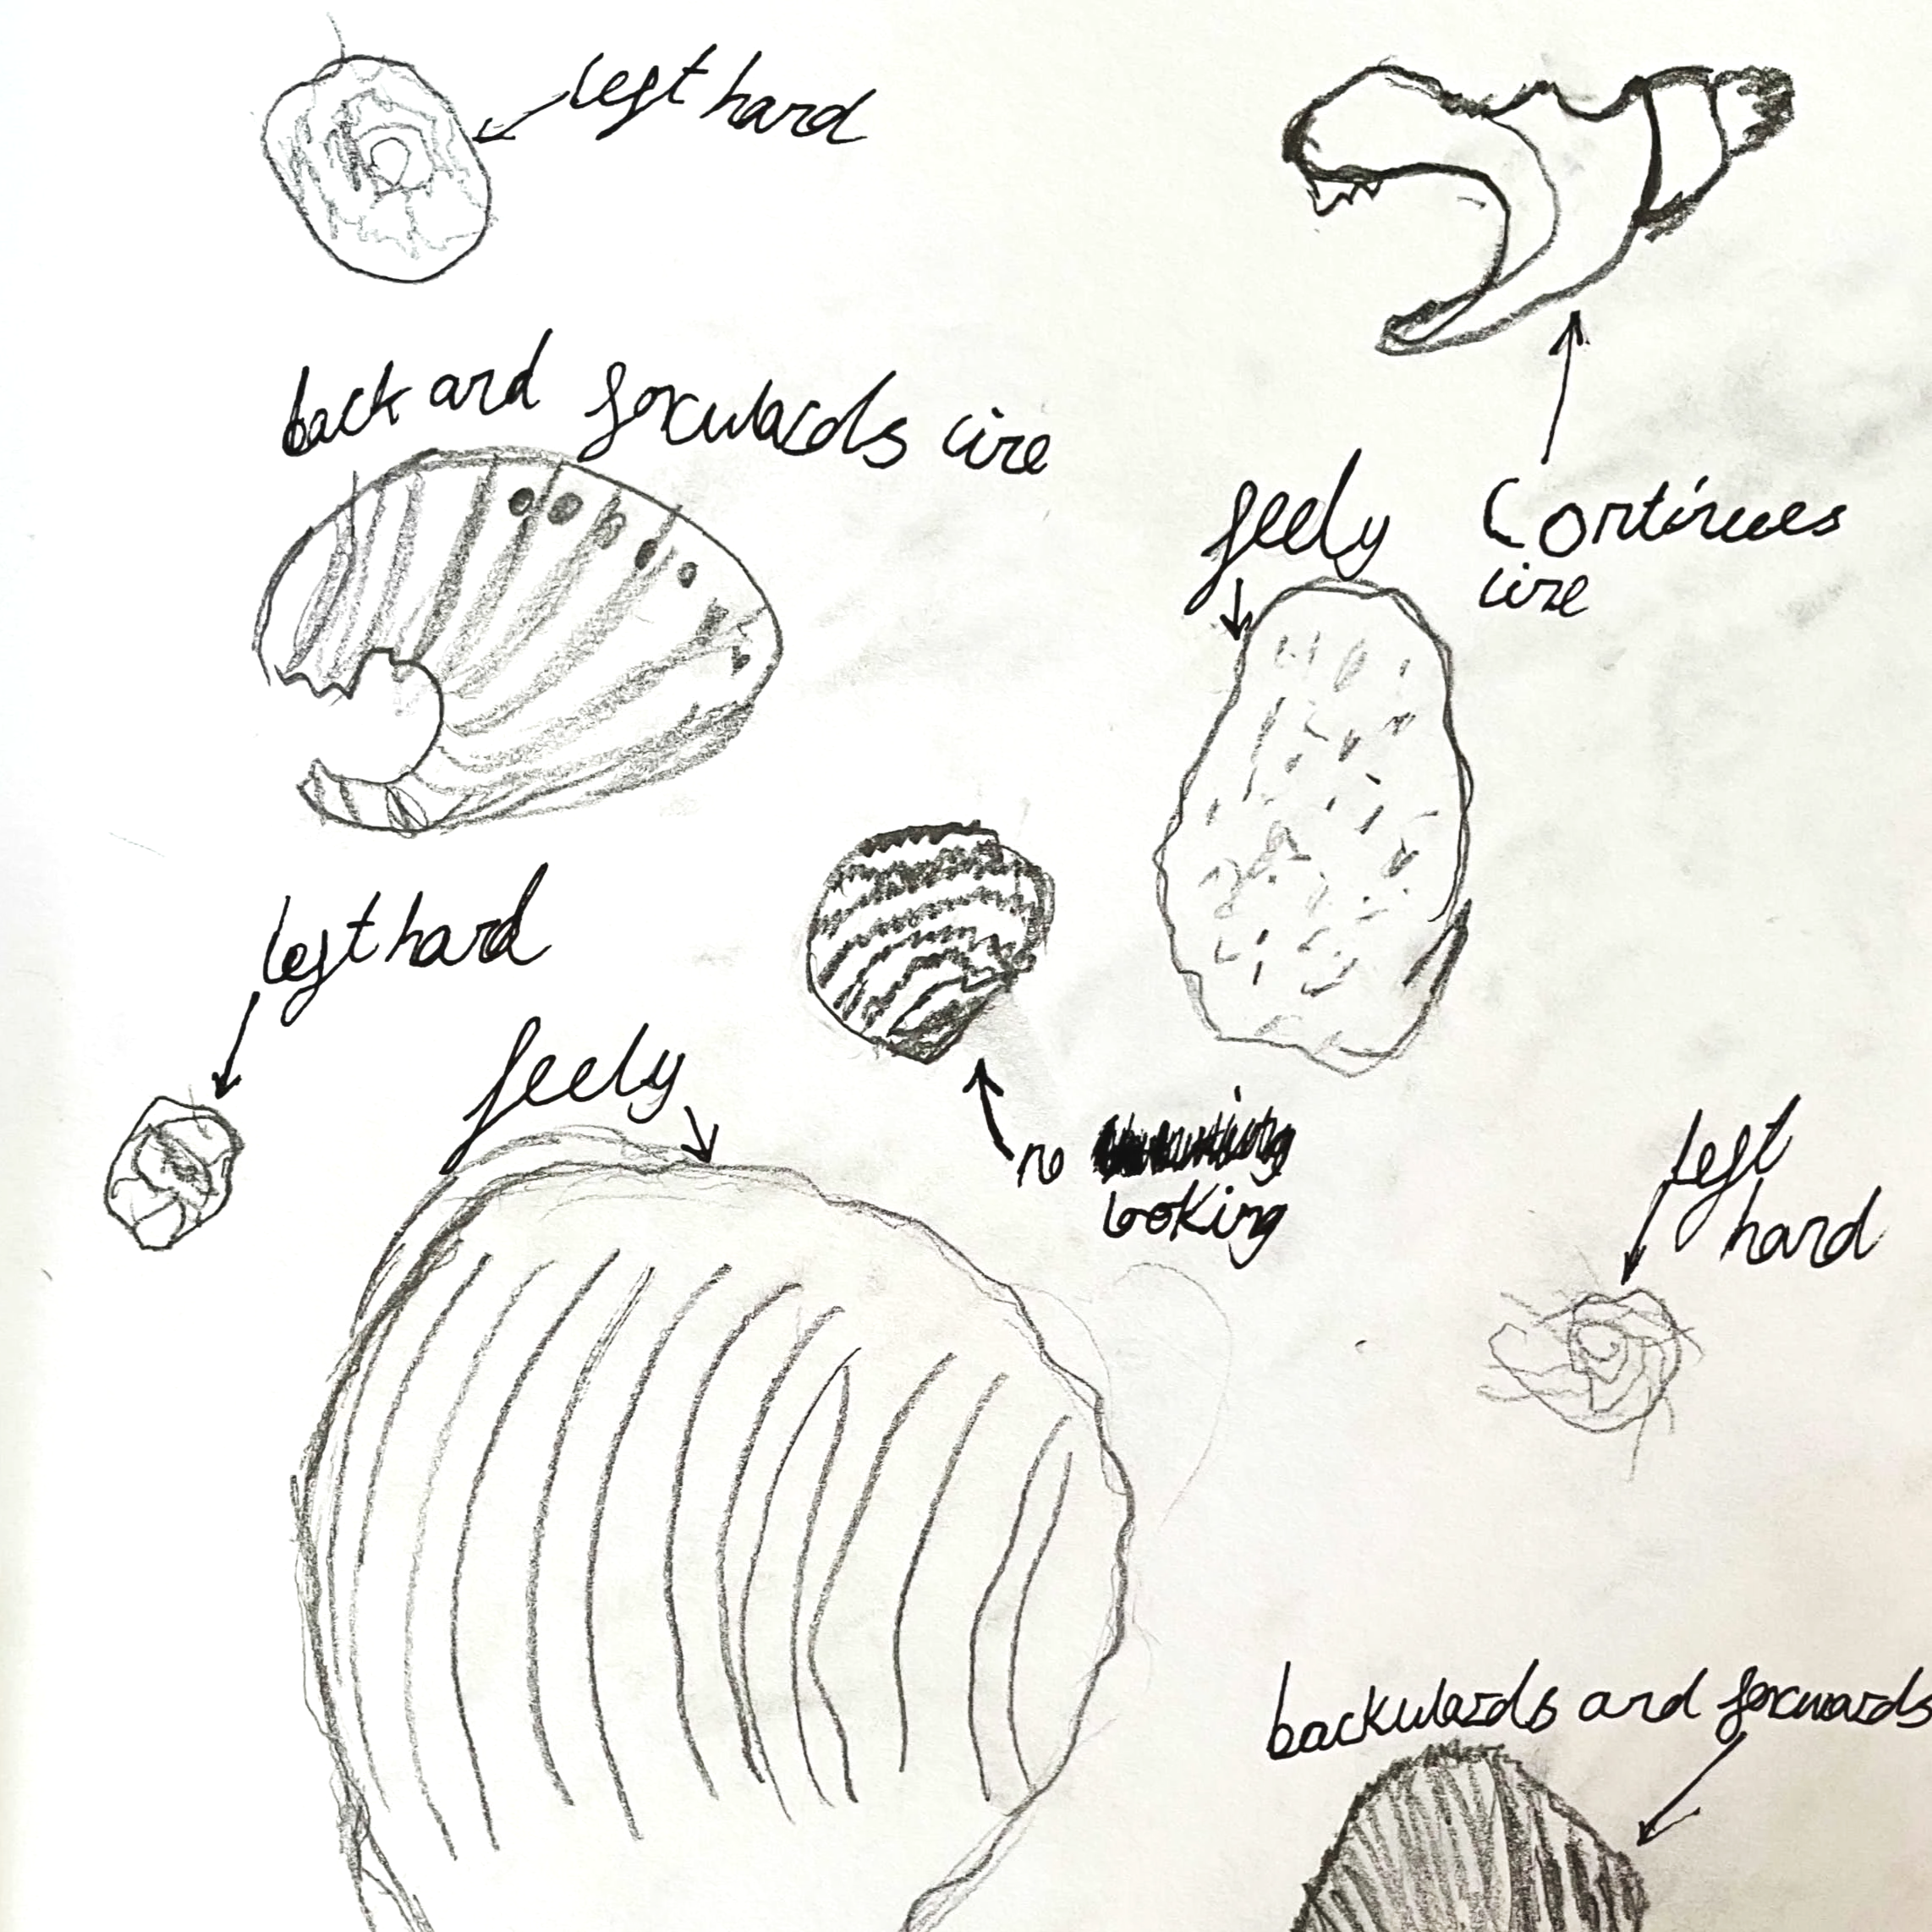 left hand
back and forwards line
feely
Continues
line
left hand
feely
no
looking
left
hand
backwards and forwards